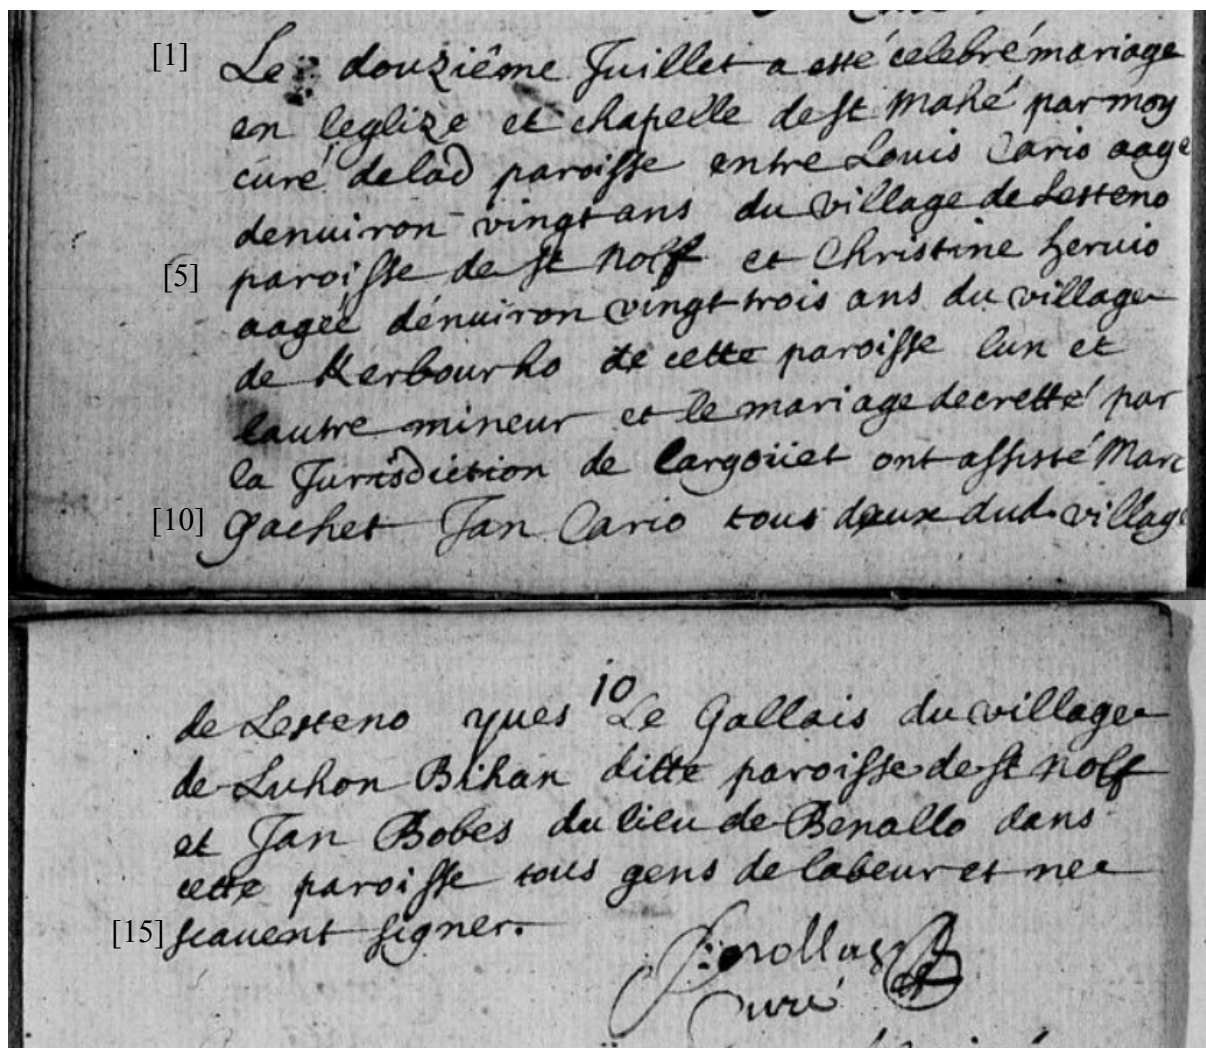 [1] Le douziême Juillet a esté celebré mariage
en leglize et chapelle de st Mahé par moy
curé de lad paroisse entre Louis Cario aagé
denuiron vingt ans du village de Lesteno
[5] paroisse de st Nolff et Christine hervio
aageé dénuiron vingt trois ans du village
de Kerbourho de cette paroisse lun et
lautre mineur et le mariage decretté par
la Jurisdiction de Largoüet ont assisté Marc
[10] Gachet Jan Cario tous deux dud. village
10
de Lesteno yues Le Gallais du village
de Luhon Bihan ditte paroisse de st Nolff
et Jan Bobes du lieu de Benallo dans
cette paroisse tous gens de labeur et ne
[15] scauent signer.
curé